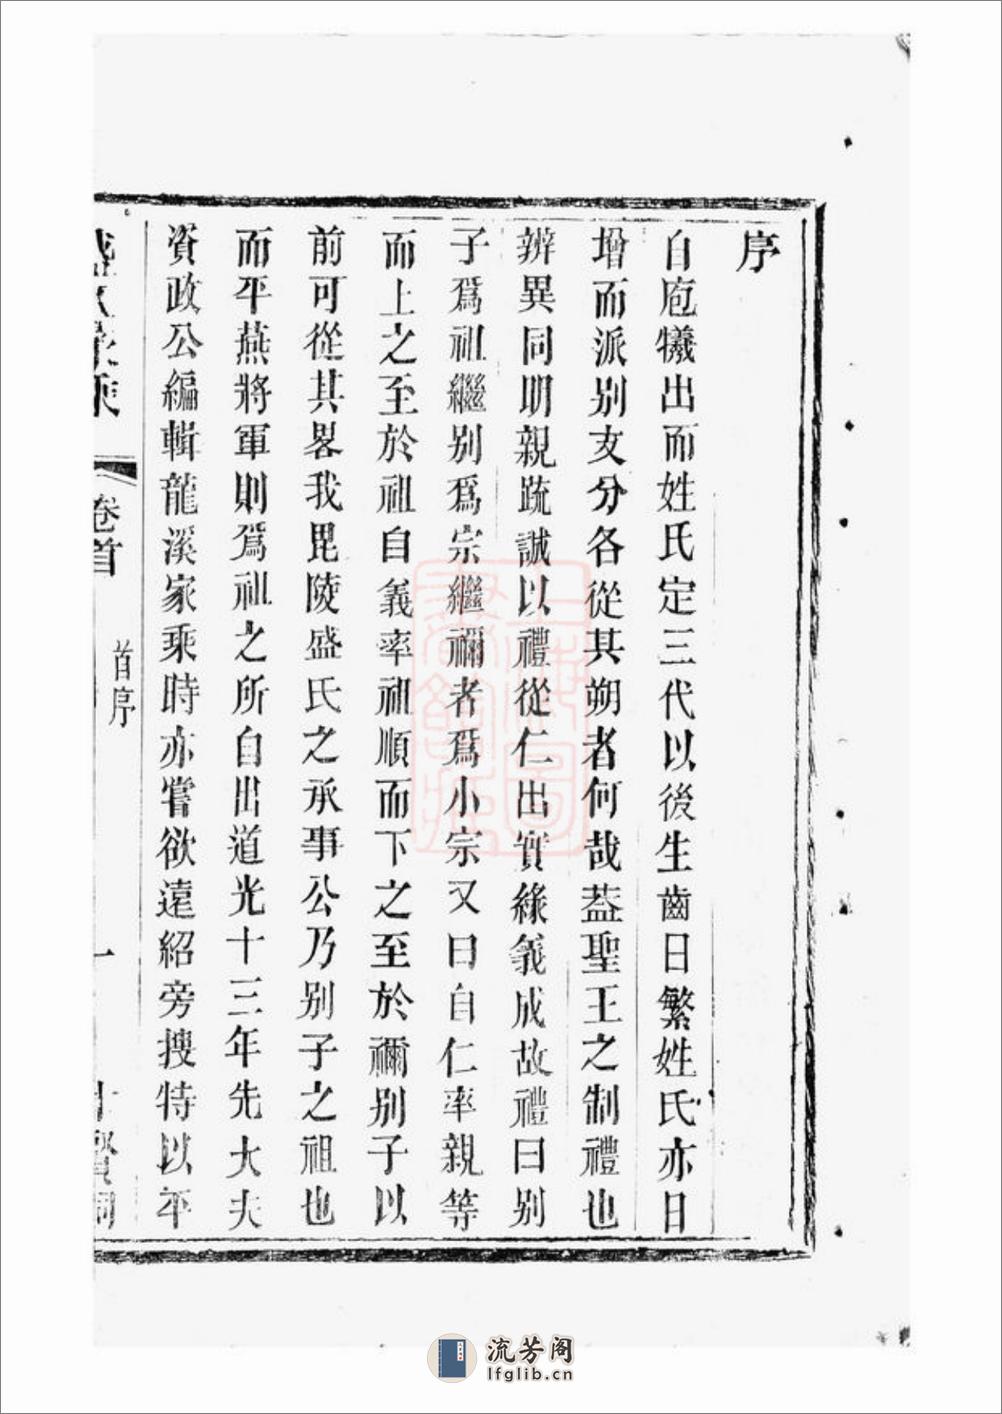 序
自庖犧出而姓氏定三代以後生齒日繁姓氏亦日
增而派别支分各從其朔者何哉葢聖王之制禮也
辨異同明親疏誠以禮從仁出實緣義成故禮曰别
子爲祖繼别爲宗繼禰者爲小宗又曰自仁率親等
而上之至於祖自義率祖順而下之至於禰别子以
前可從其畧我毘陵盛氏之承事公乃别子之祖也
而平燕將軍則爲祖之所自出道光十三年先大夫
資政公編輯龍溪家乘時亦嘗欲遠紹旁搜特以平
盛氏家乘
卷首
首序
一
流芳阁
lfglib.cn